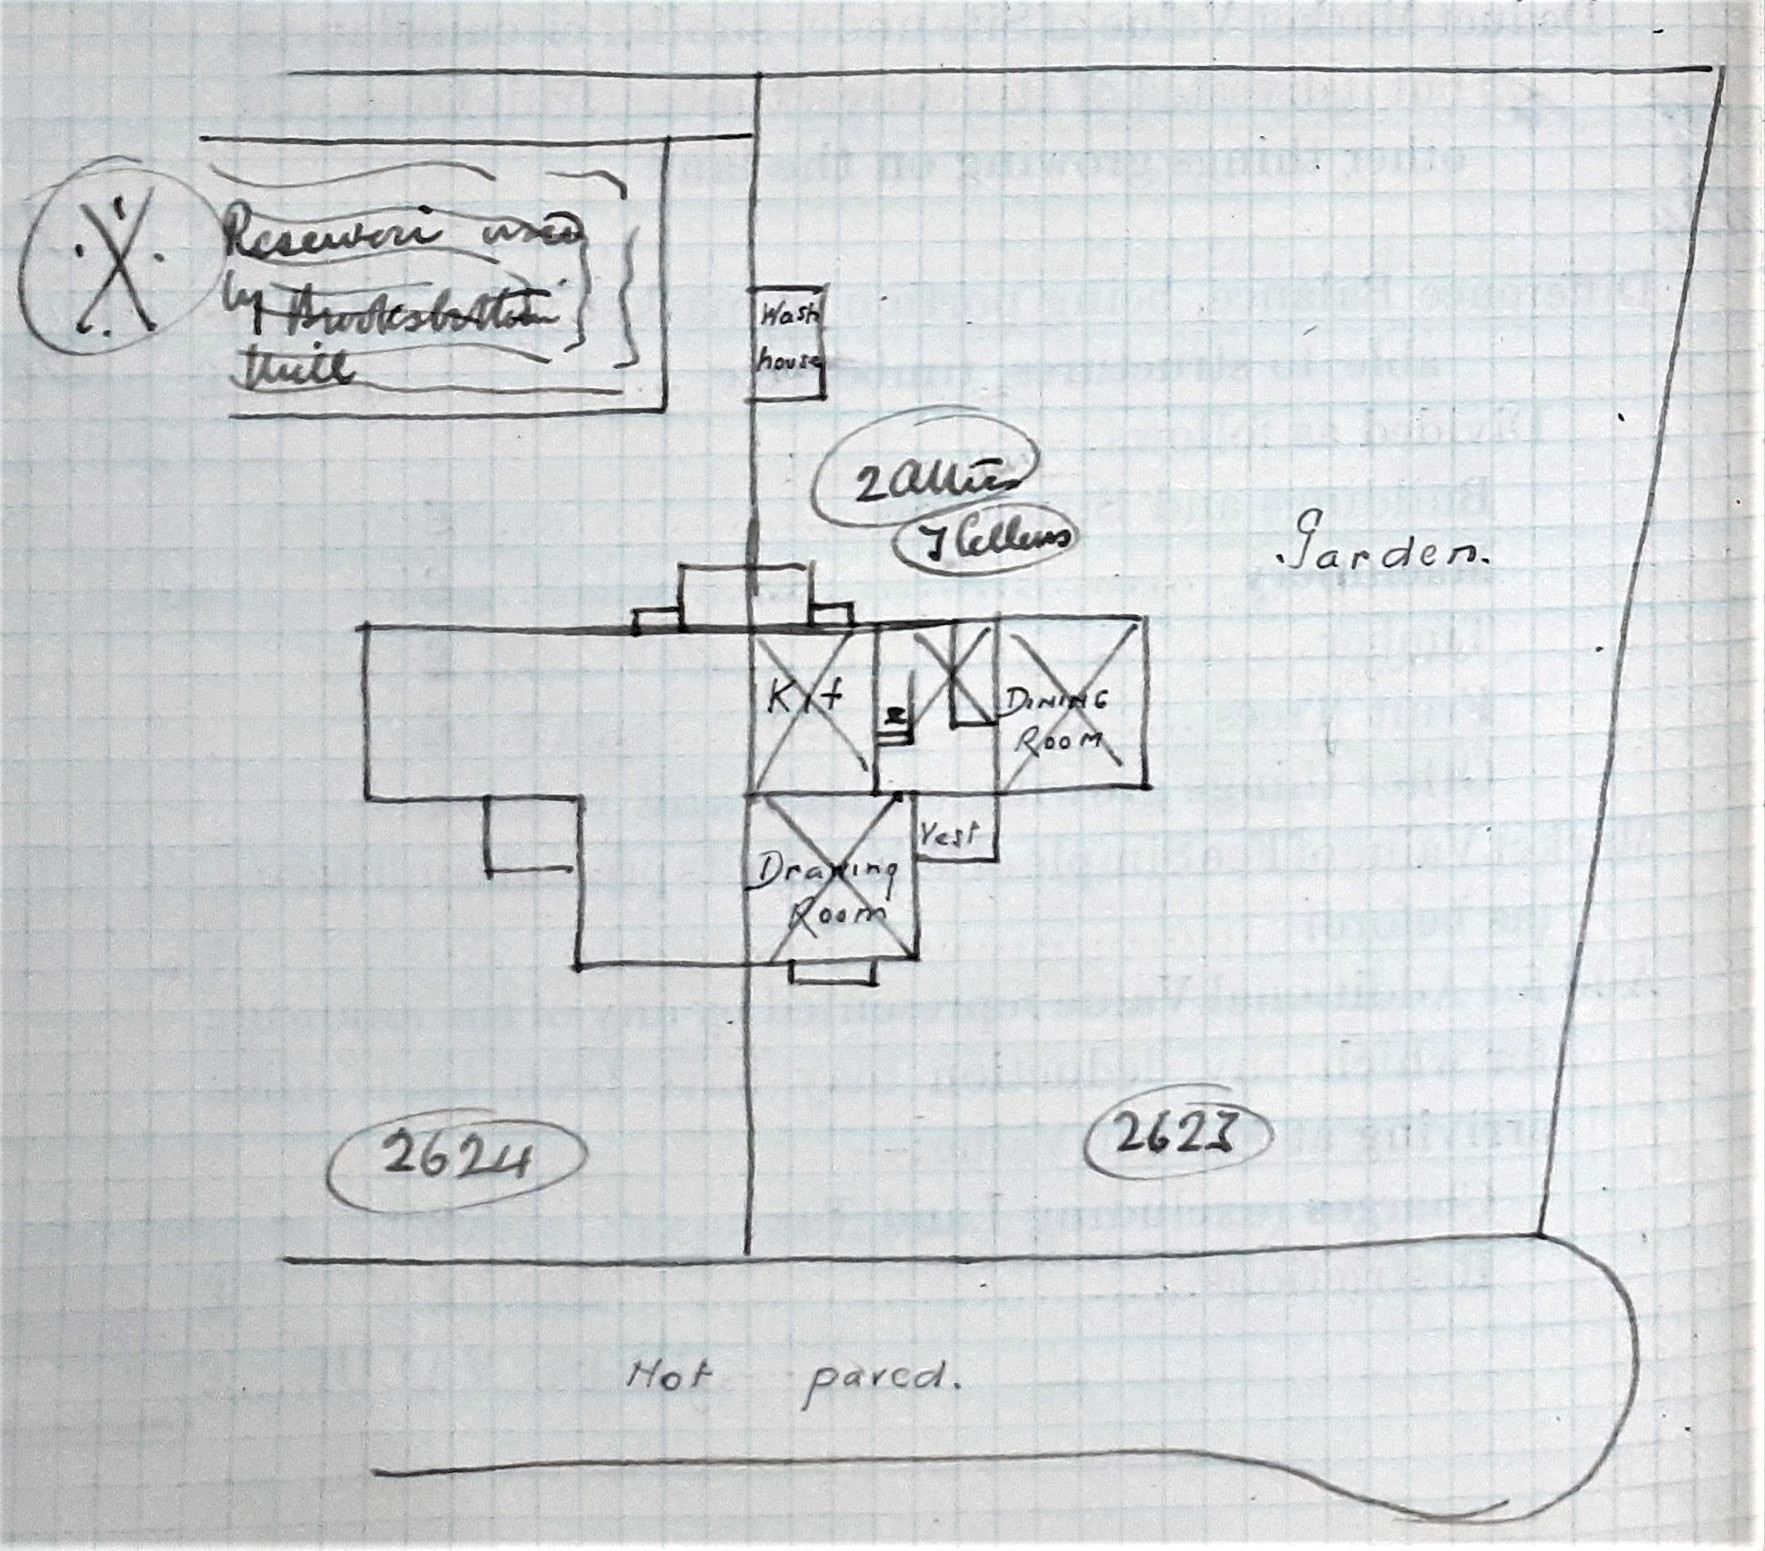 Reservoir used
by Brooksbottom
Mill
Wash
house
2 Attics
3 Cellars
Garden.
Kit
DINING
ROOM
Vest
Drawing
Room
2624
2623
Not paved.